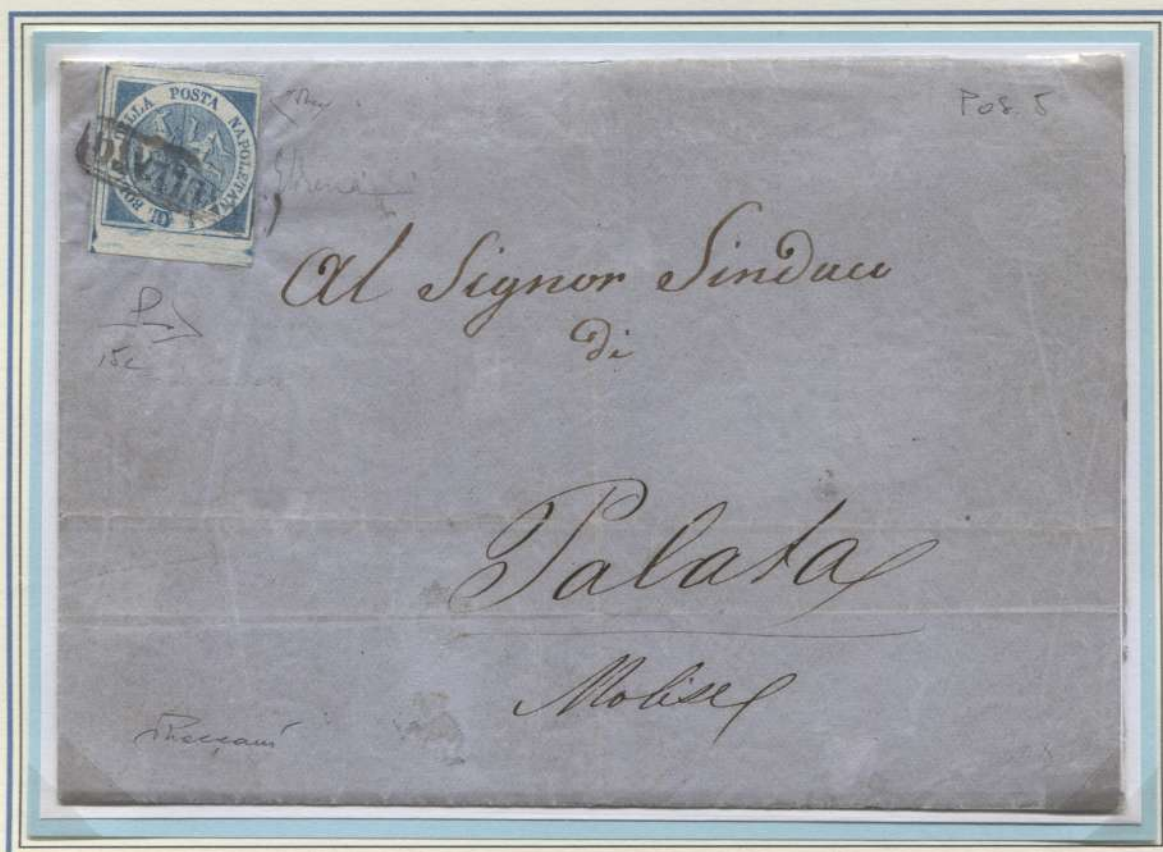 BOLLO DELLA POSTA NAPOLETANA
ANNULLATO
Pos. 5
Al Signor Sindaco
di
15c
Palata
Molise